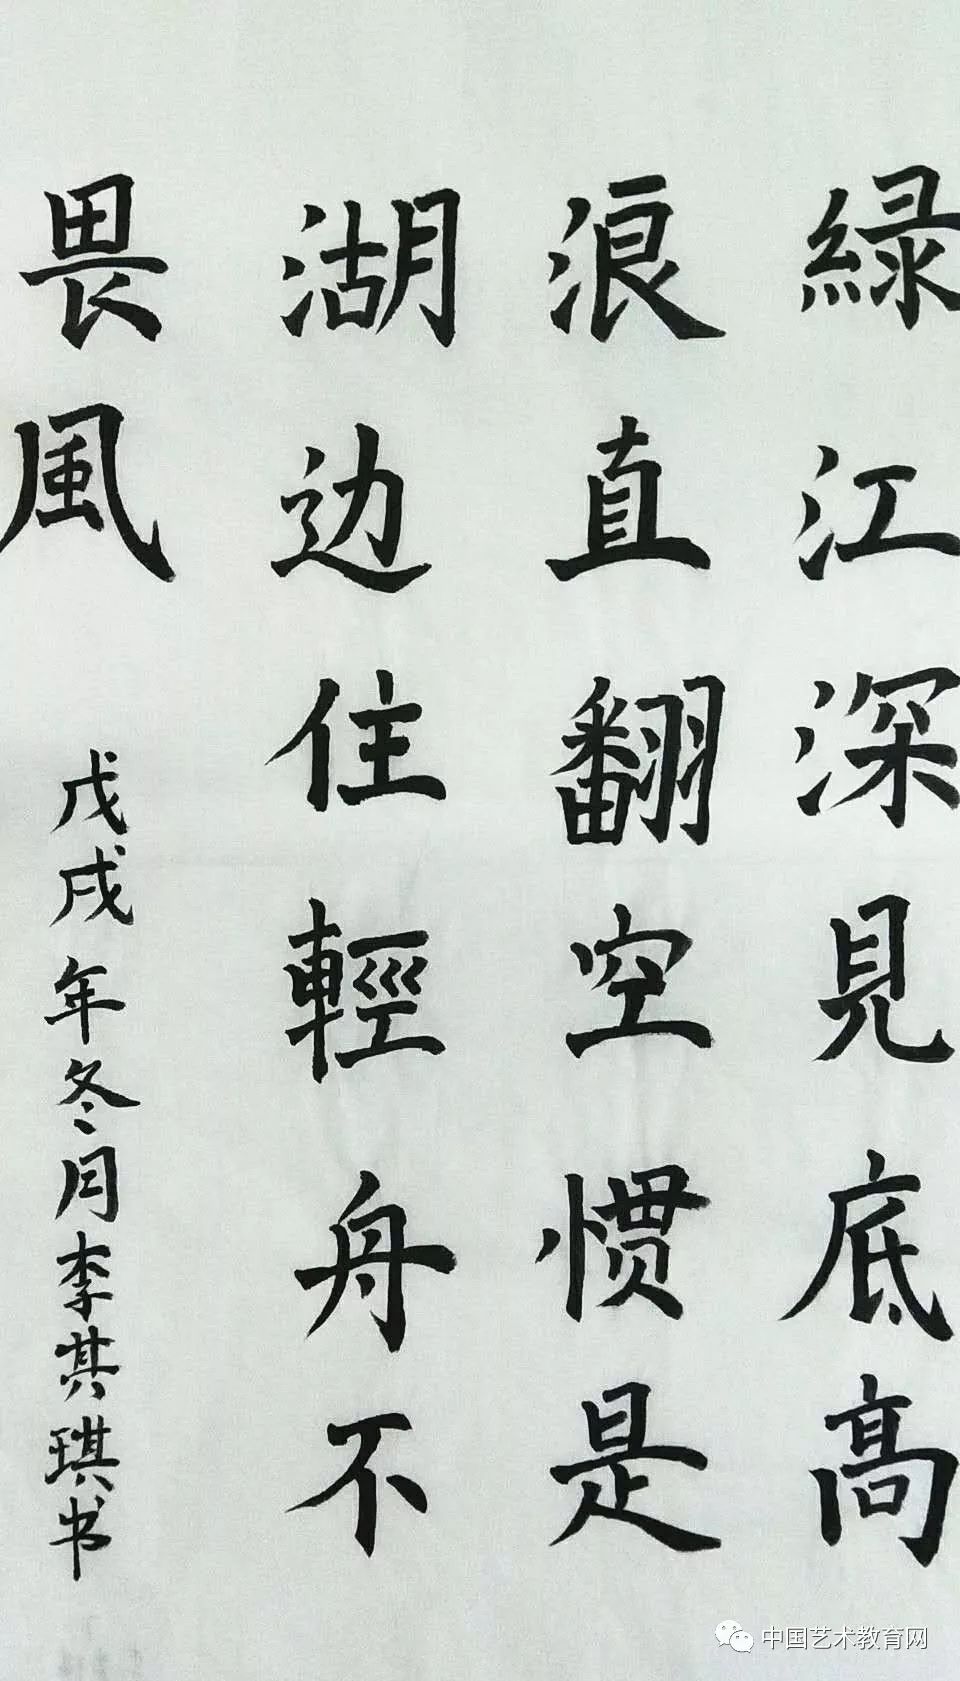 緑江深見底高
浪直翻空惯是
湖边住輕舟不
畏風
戊戌年冬月李其琪书
中国艺术教育网